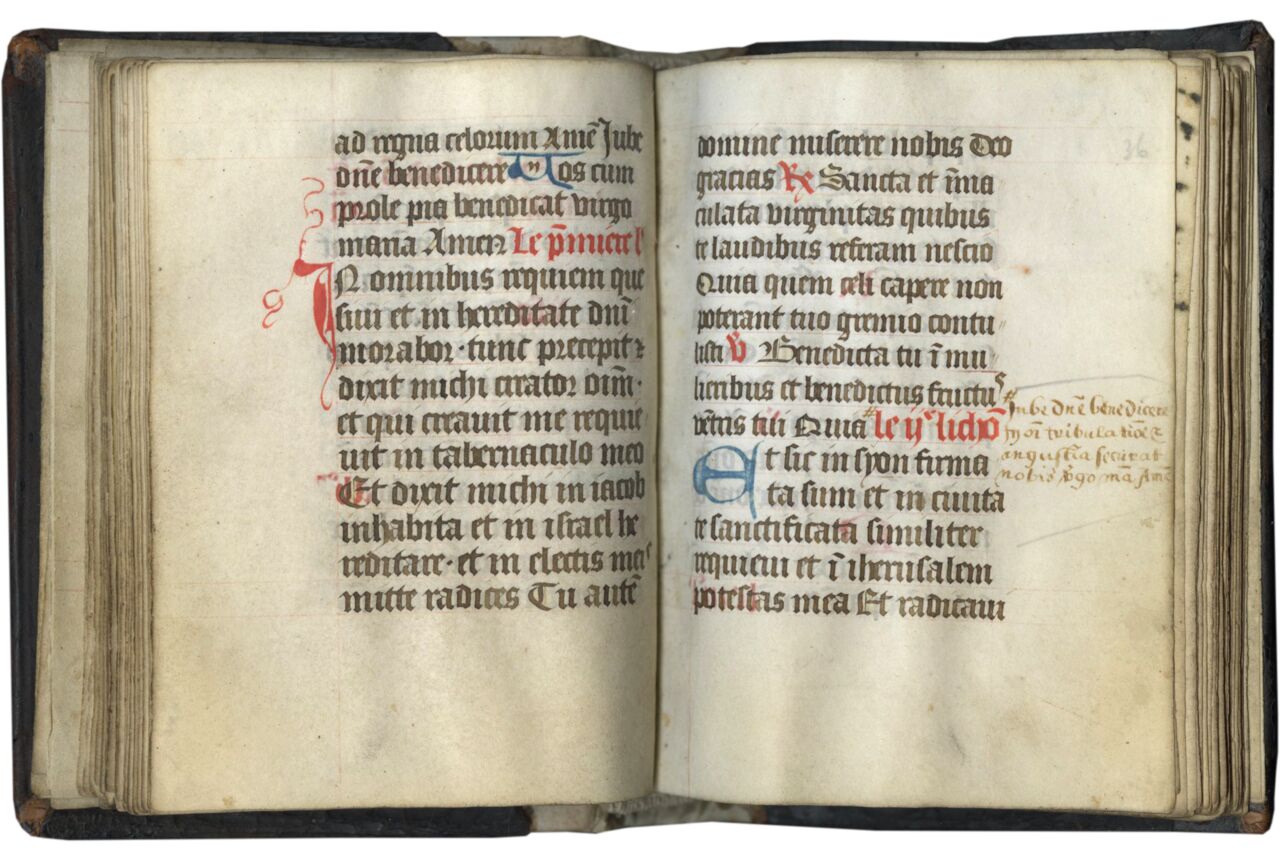 ad regna celorum Amē Jube
dn̄e benedicere Nos cum
prole pia benedicat virgo
maria Amen Le p̄miere l
IN omnibus requiem que
siui et in hereditate dnī
morabor · tunc precepit ⁊
dixit michi creator oīm ·
et qui creauit me requie
uit in tabernaculo meo
Et dixit michi in iacob
inhabita et in israel he
reditare · et in electis meis
mitte radices Tu autē
domine miserere nobis Deo
gracias Rx Sancta et īma
culata virginitas quibus
te laudibus referam nescio
Quia quem celi capere non
poterant tuo gremio contu〃
listi V Benedicta tu ī mu〃
lieribus et benedictus fructus
vētris tui Quia # le ijᵉ lichō
Et sic in syon firma
ta sum et in ciuita
te sanctificata similiter
requieui et ī iherusalem
potestas mea Et radicaui
36
# Jube dn̄e benedicere
Jn oī tribulatiōe ⁊
angustia secūrat
nobis v̄go mā Amē